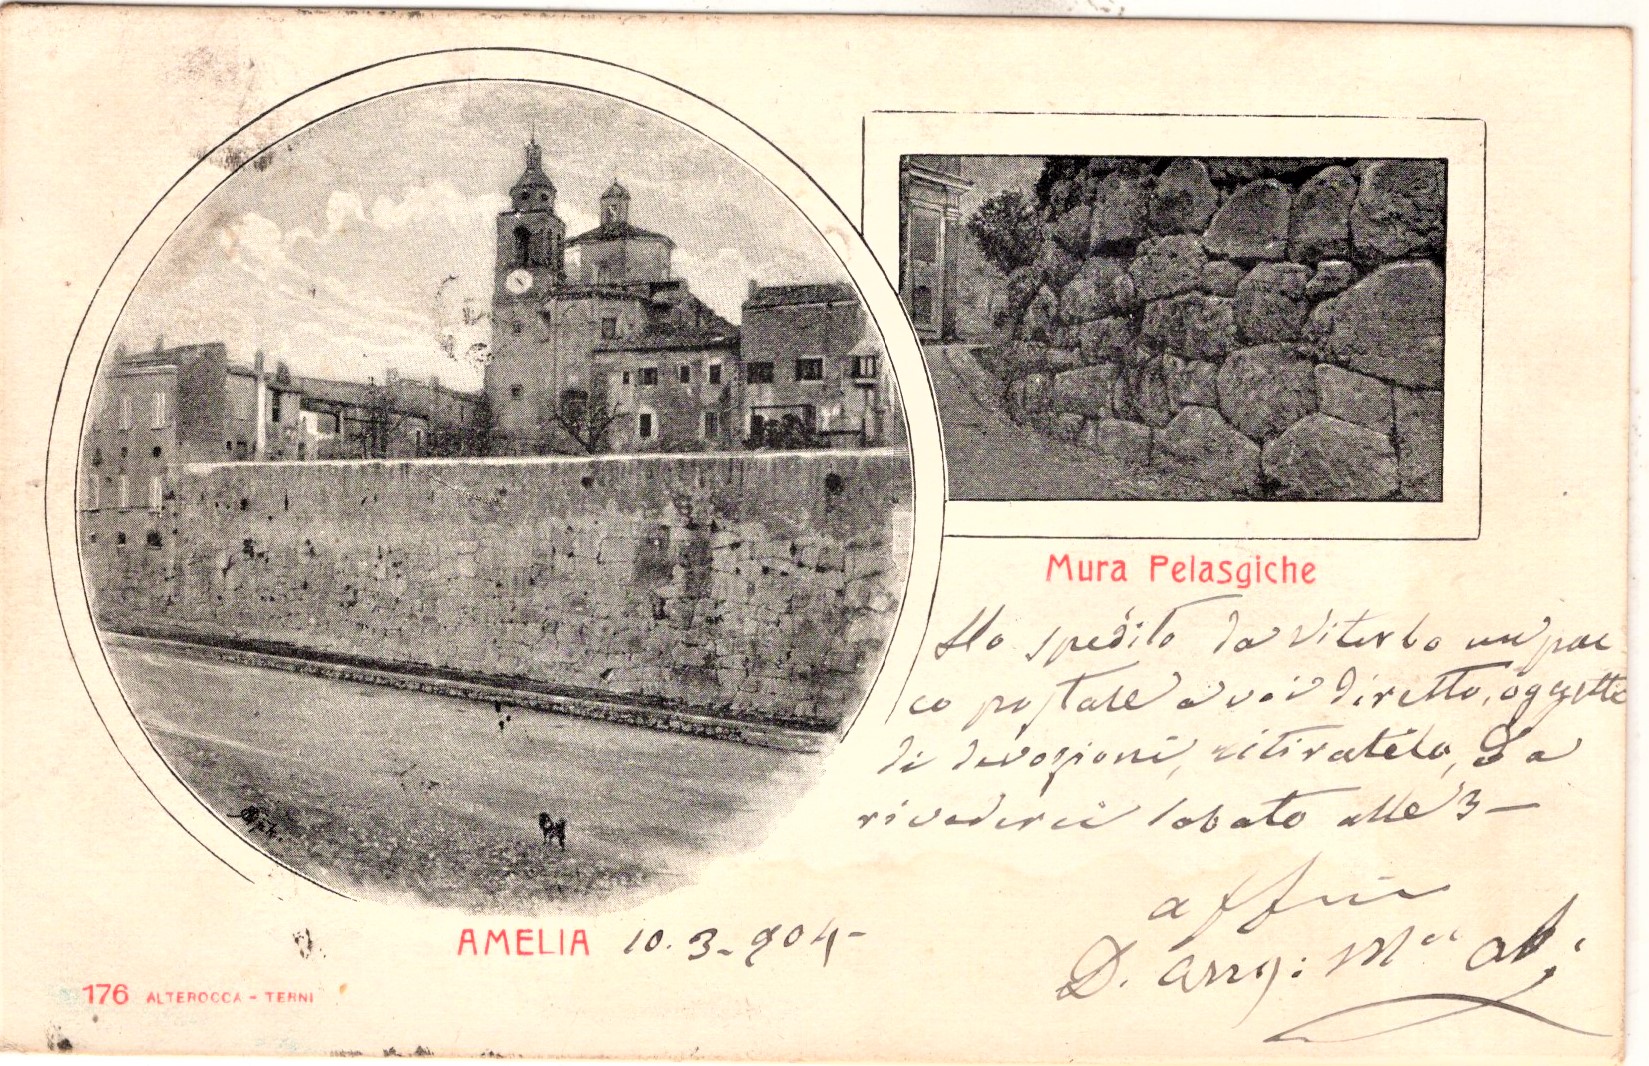 Mura Pelasgiche
Ho spedito da Viterbo un pac
co postale a voi diretto, oggetti
di devozioni, ritiratelo, ed a
rivederci sabato alle 3-
affmi
D.
AMELIA 10.3-904-
176 ALTEROCCA - TERNI